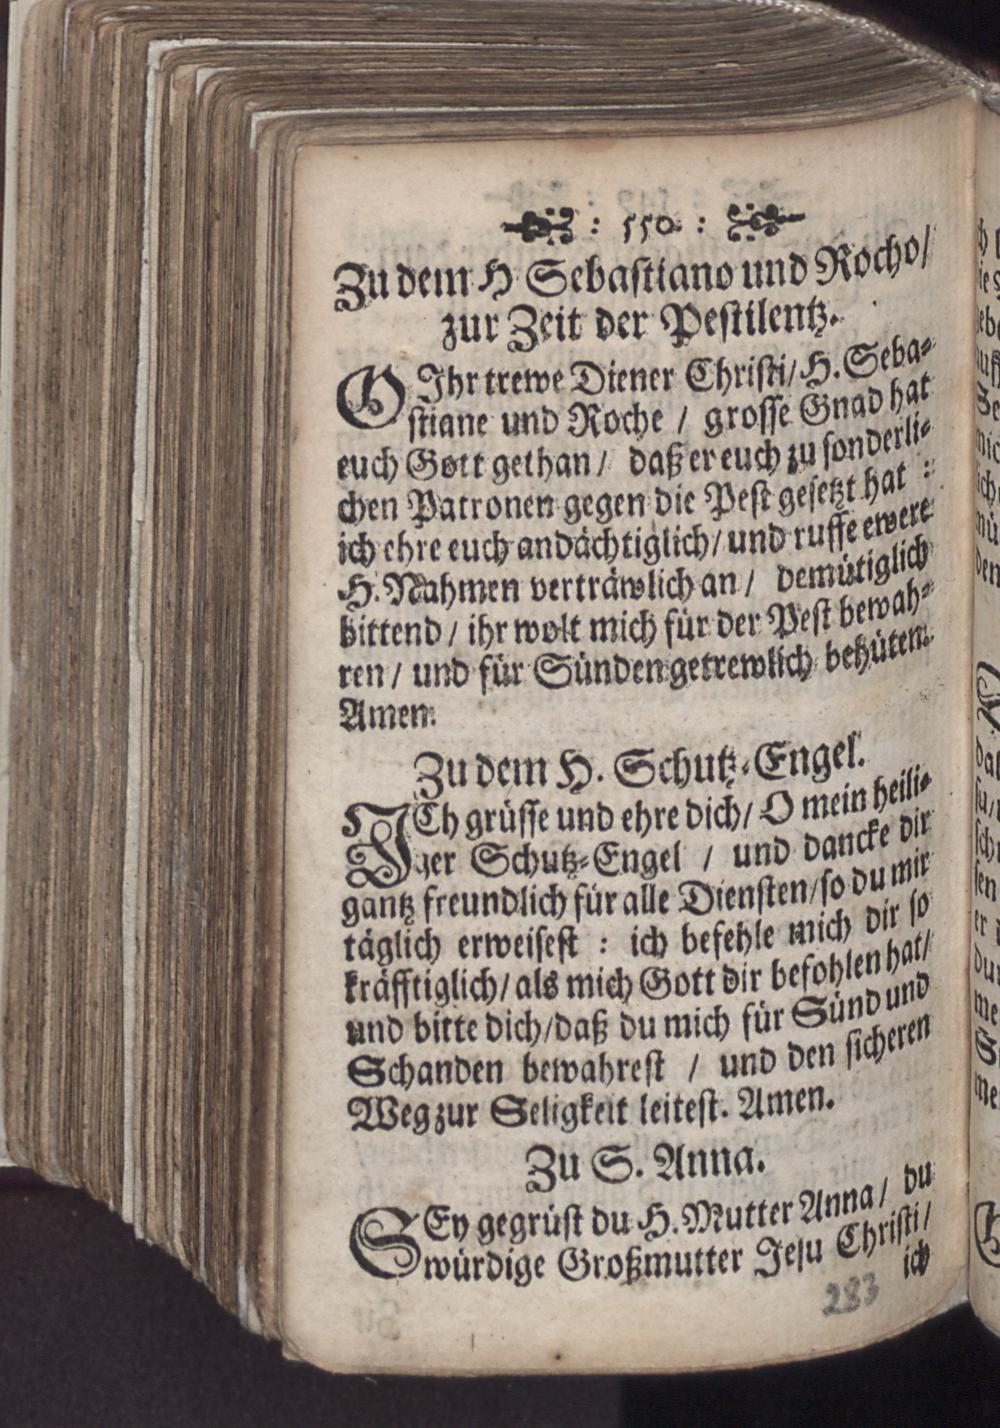 : 550. :
Zu dem H Sebastiano und Rocho/
zur Zeit der Pestilentz.
O Ihr trewe Diener Christi/ H. Seba-
stiane und Roche / grosse Gnad hat
euch Gott gethan / daß er euch zu sonderli-
chen Patronen gegen die Pest gesetzt hat :
ich ehre euch andächtiglich/ und ruffe ewere
H. Nahmen verträwlich an / demütiglich
bittend / ihr wolt mich für der Pest bewah-
ren / und für Sünden getrewlich behüten.
Amen.
Zu dem H. Schutz-Engel.
ICh grüsse und ehre dich/ O mein heili-
ger Schutz-Engel / und dancke dir
gantz freundlich für alle Diensten/ so du mir
täglich erweisest : ich befehle mich dir so
kräfftiglich/ als mich Gott dir befohlen hat/
und bitte dich/ daß du mich für Sünd und
Schanden bewahrest / und den sicheren
Weg zur Seligkeit leitest. Amen.
Zu S. Anna.
SEy gegrüst du H. Mutter Anna / du
würdige Großmutter Jesu Christi /
ich
283